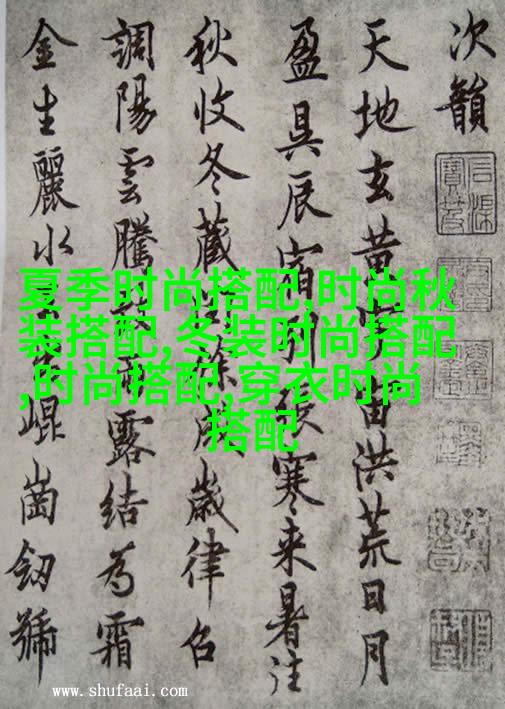 次韻
天地玄黄宇宙洪荒日月
盈昃辰宿列張寒来暑往
秋收冬藏閏餘成歲律召
調陽雲騰致雨露結為霜
金生麗水玉出崐崗劒號
夏季时尚搭配,时尚秋
装搭配,冬装时尚搭配
,时尚搭配,穿衣时尚
搭配
www.shufaai.com